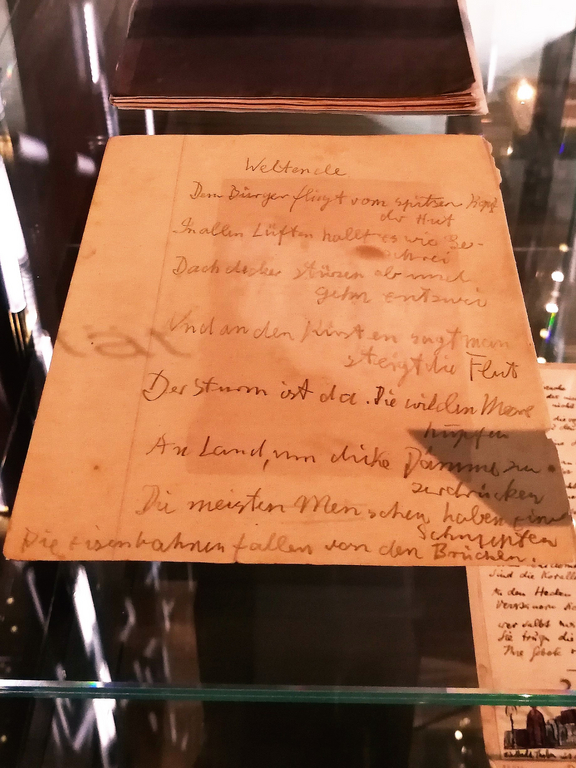 Weltende
Dem Bürger fliegt vom spitzen Kopf
der Hut
In allen Lüften hallt es wie Ge-
schrei
Dachdecker stürzen ab und
gehn entzwei
Und an den Küsten sagt man
steigt die Flut
Der Sturm ist da. Die wilden Meere
hupfen
An Land, um dicke Dämme zu
zerdrücken
Die meisten Menschen haben eine
Schnupfen
Die Eisenbahnen fallen von den Brücken.
sind die
An den
wer selbst
Sie trägt die